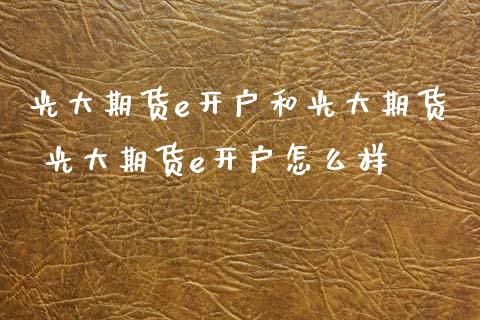 光大期货e开户和光大期货
光大期货e开户怎么样